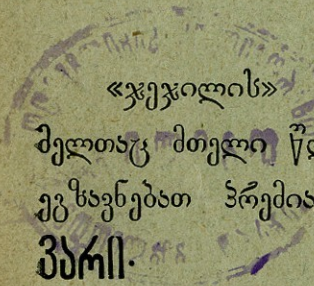 «ჯეჯილის»
მელთაც მთელი წლ
ეგზავნებათ პრემია
ვარი.